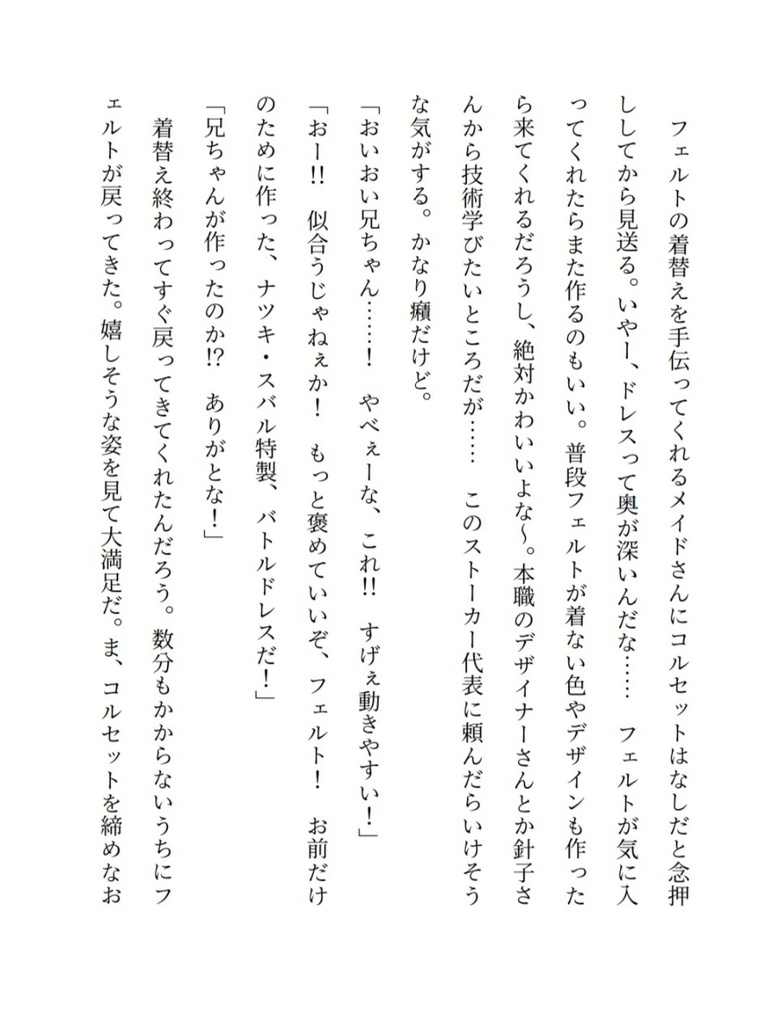 フェルトの着替えを手伝ってくれるメイドさんにコルセットはなしだと念押
ししてから見送る。いやー、ドレスって奥が深いんだな……　フェルトが気に入
ってくれたらまた作るのもいい。普段フェルトが着ない色やデザインも作った
ら来てくれるだろうし、絶対かわいいよな～。本職のデザイナーさんとか針子さ
んから技術学びたいところだが……　このストーカー代表に頼んだらいけそう
な気がする。かなり癪だけど。
「おいおい兄ちゃん……！　やべぇーな、これ!!　すげぇ動きやすい！」
「おー!!　似合うじゃねぇか！　もっと褒めていいぞ、フェルト！　お前だけ
のために作った、ナツキ・スバル特製、バトルドレスだ！」
「兄ちゃんが作ったのか!?　ありがとな！」
　着替え終わってすぐ戻ってきてくれたんだろう。数分もかからないうちにフ
ェルトが戻ってきた。嬉しそうな姿を見て大満足だ。ま、コルセットを締めなお